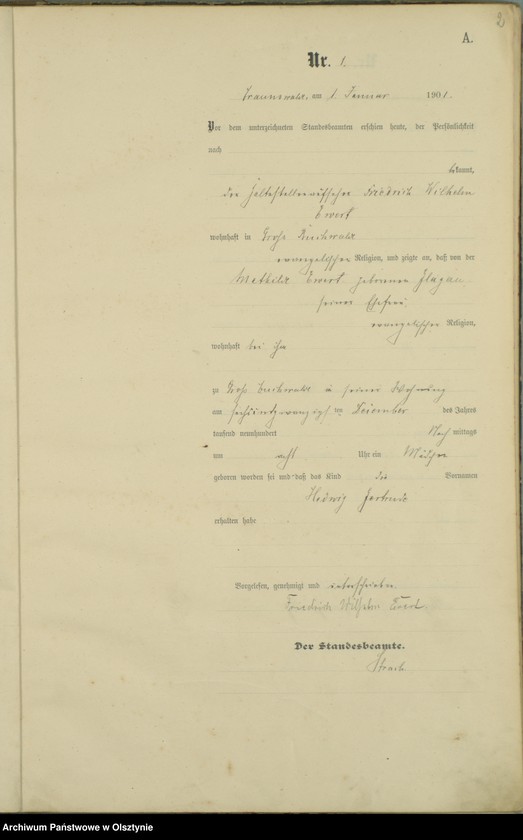 2
A.
Nr. 1.
am 1. Januar 1901.
Vor dem unterzeichneten Standesbeamten erschien heute, der Persönlichkeit
nach
bekannt,
der Friedrich Wilhelm
Ewert
wohnhaft in Groß Buchwalde
evangelischer Religion, und zeigte an, daß von der
Mathilde Ewert geborenen
seiner Ehefrau
evangelischer Religion,
wohnhaft bei ihm
zu Groß Buchwalde in seiner Wohnung
am sechsundzwanzigsten Dezember des Jahres
tausend neunhundert Nach mittags
um acht Uhr ein Mädchen
geboren worden sei und daß das Kind die Vornamen
Hedwig Gertrude
erhalten habe
Vorgelesen, genehmigt und unterschrieben.
Friedrich Wilhelm Ewert
Der Standesbeamte.
Archiwum Państwowe w Olsztynie